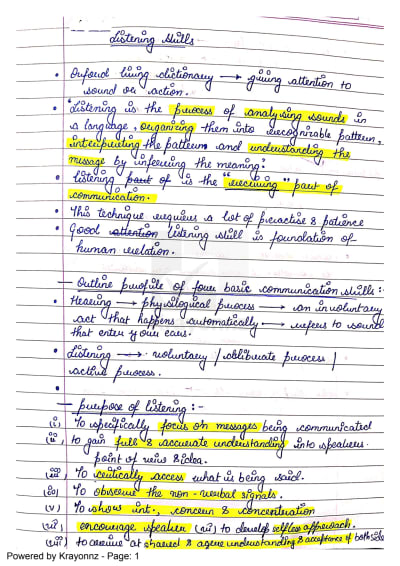 Listening skills
• Oxford living dictionary → giving attention to
sound or action.
• "Listening is the process of analysing sounds in
a language, organizing them into recognizable pattern,
interpreting the pattern and understanding the
message by inferring the meaning."
• listening part of is the "receiving" part of
communication.
• This technique requires a lot of practise & patience
• Good attention listening skill is foundation of
human relation.
— Outline profile of four basic communication skills :-
• Hearing → physiological process → an involuntary
act that happens automatically → refers to sound
that enter your ears.
• Listening → voluntary / process /
active process.
•
— purpose of listening :-
(i) To specifically focus on messages being communicated
(ii) to gain full & accurate understanding into speakers
point of view & idea.
(iii) To critically access what is being said.
(iv) To observe the non-verbal signals.
(v) To show int., concern & concentration
(vi) encourage speaker (vii) to develop selfless approach.
(viii) to arrive at shared & agree understanding & acceptance of both side
Powered by Krayonnz - Page: 1